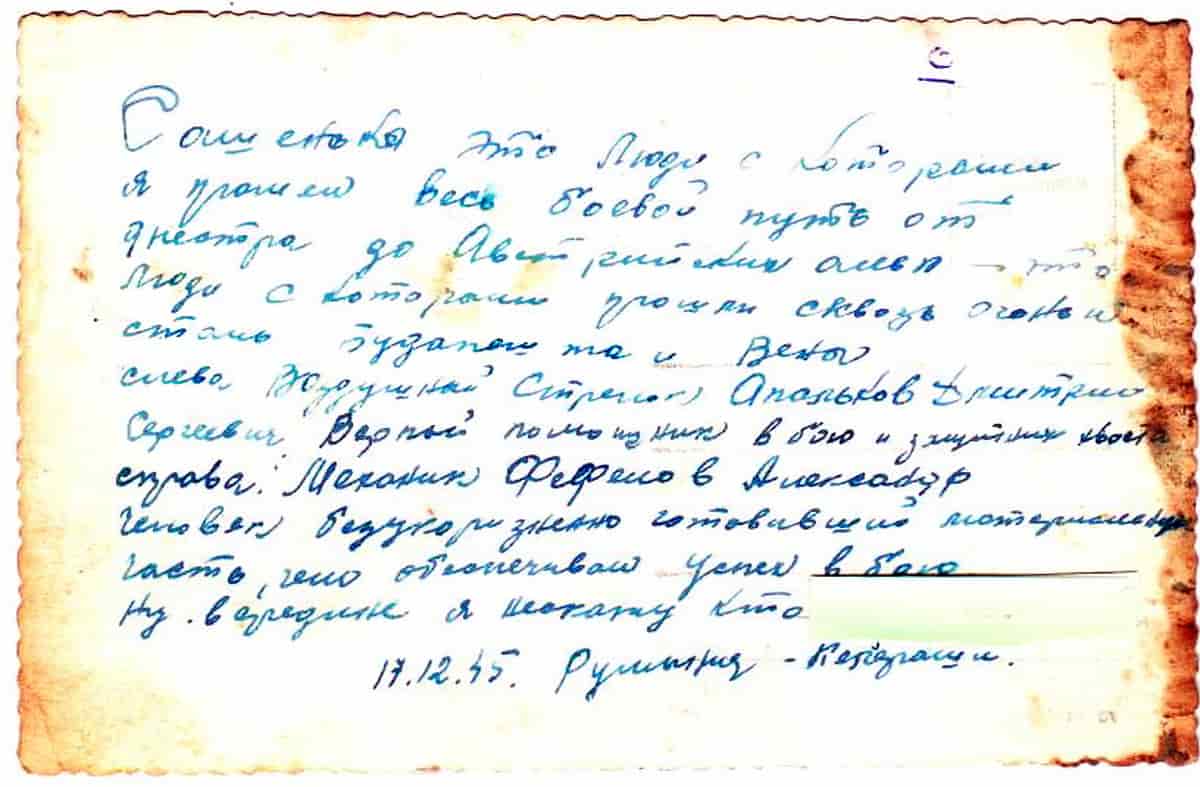 Сашенька это люди с которыми
я прошел весь боевой путь от
Днестра до Австрийских альп – это
люди с которыми прошли сквозь огонь и
сталь Будапешта и Вены
слева Воздушный Стрелок Апальков Дмитрий
Сергеевич. Верный помощник в бою и защитник хвоста
справа: Механик Фефелов Александр
Человек безукоризненно готовивший материальную
часть, чем обеспечивал успех в бою
Ну. в середине я нескажу кто
17.12.45. Румыния -